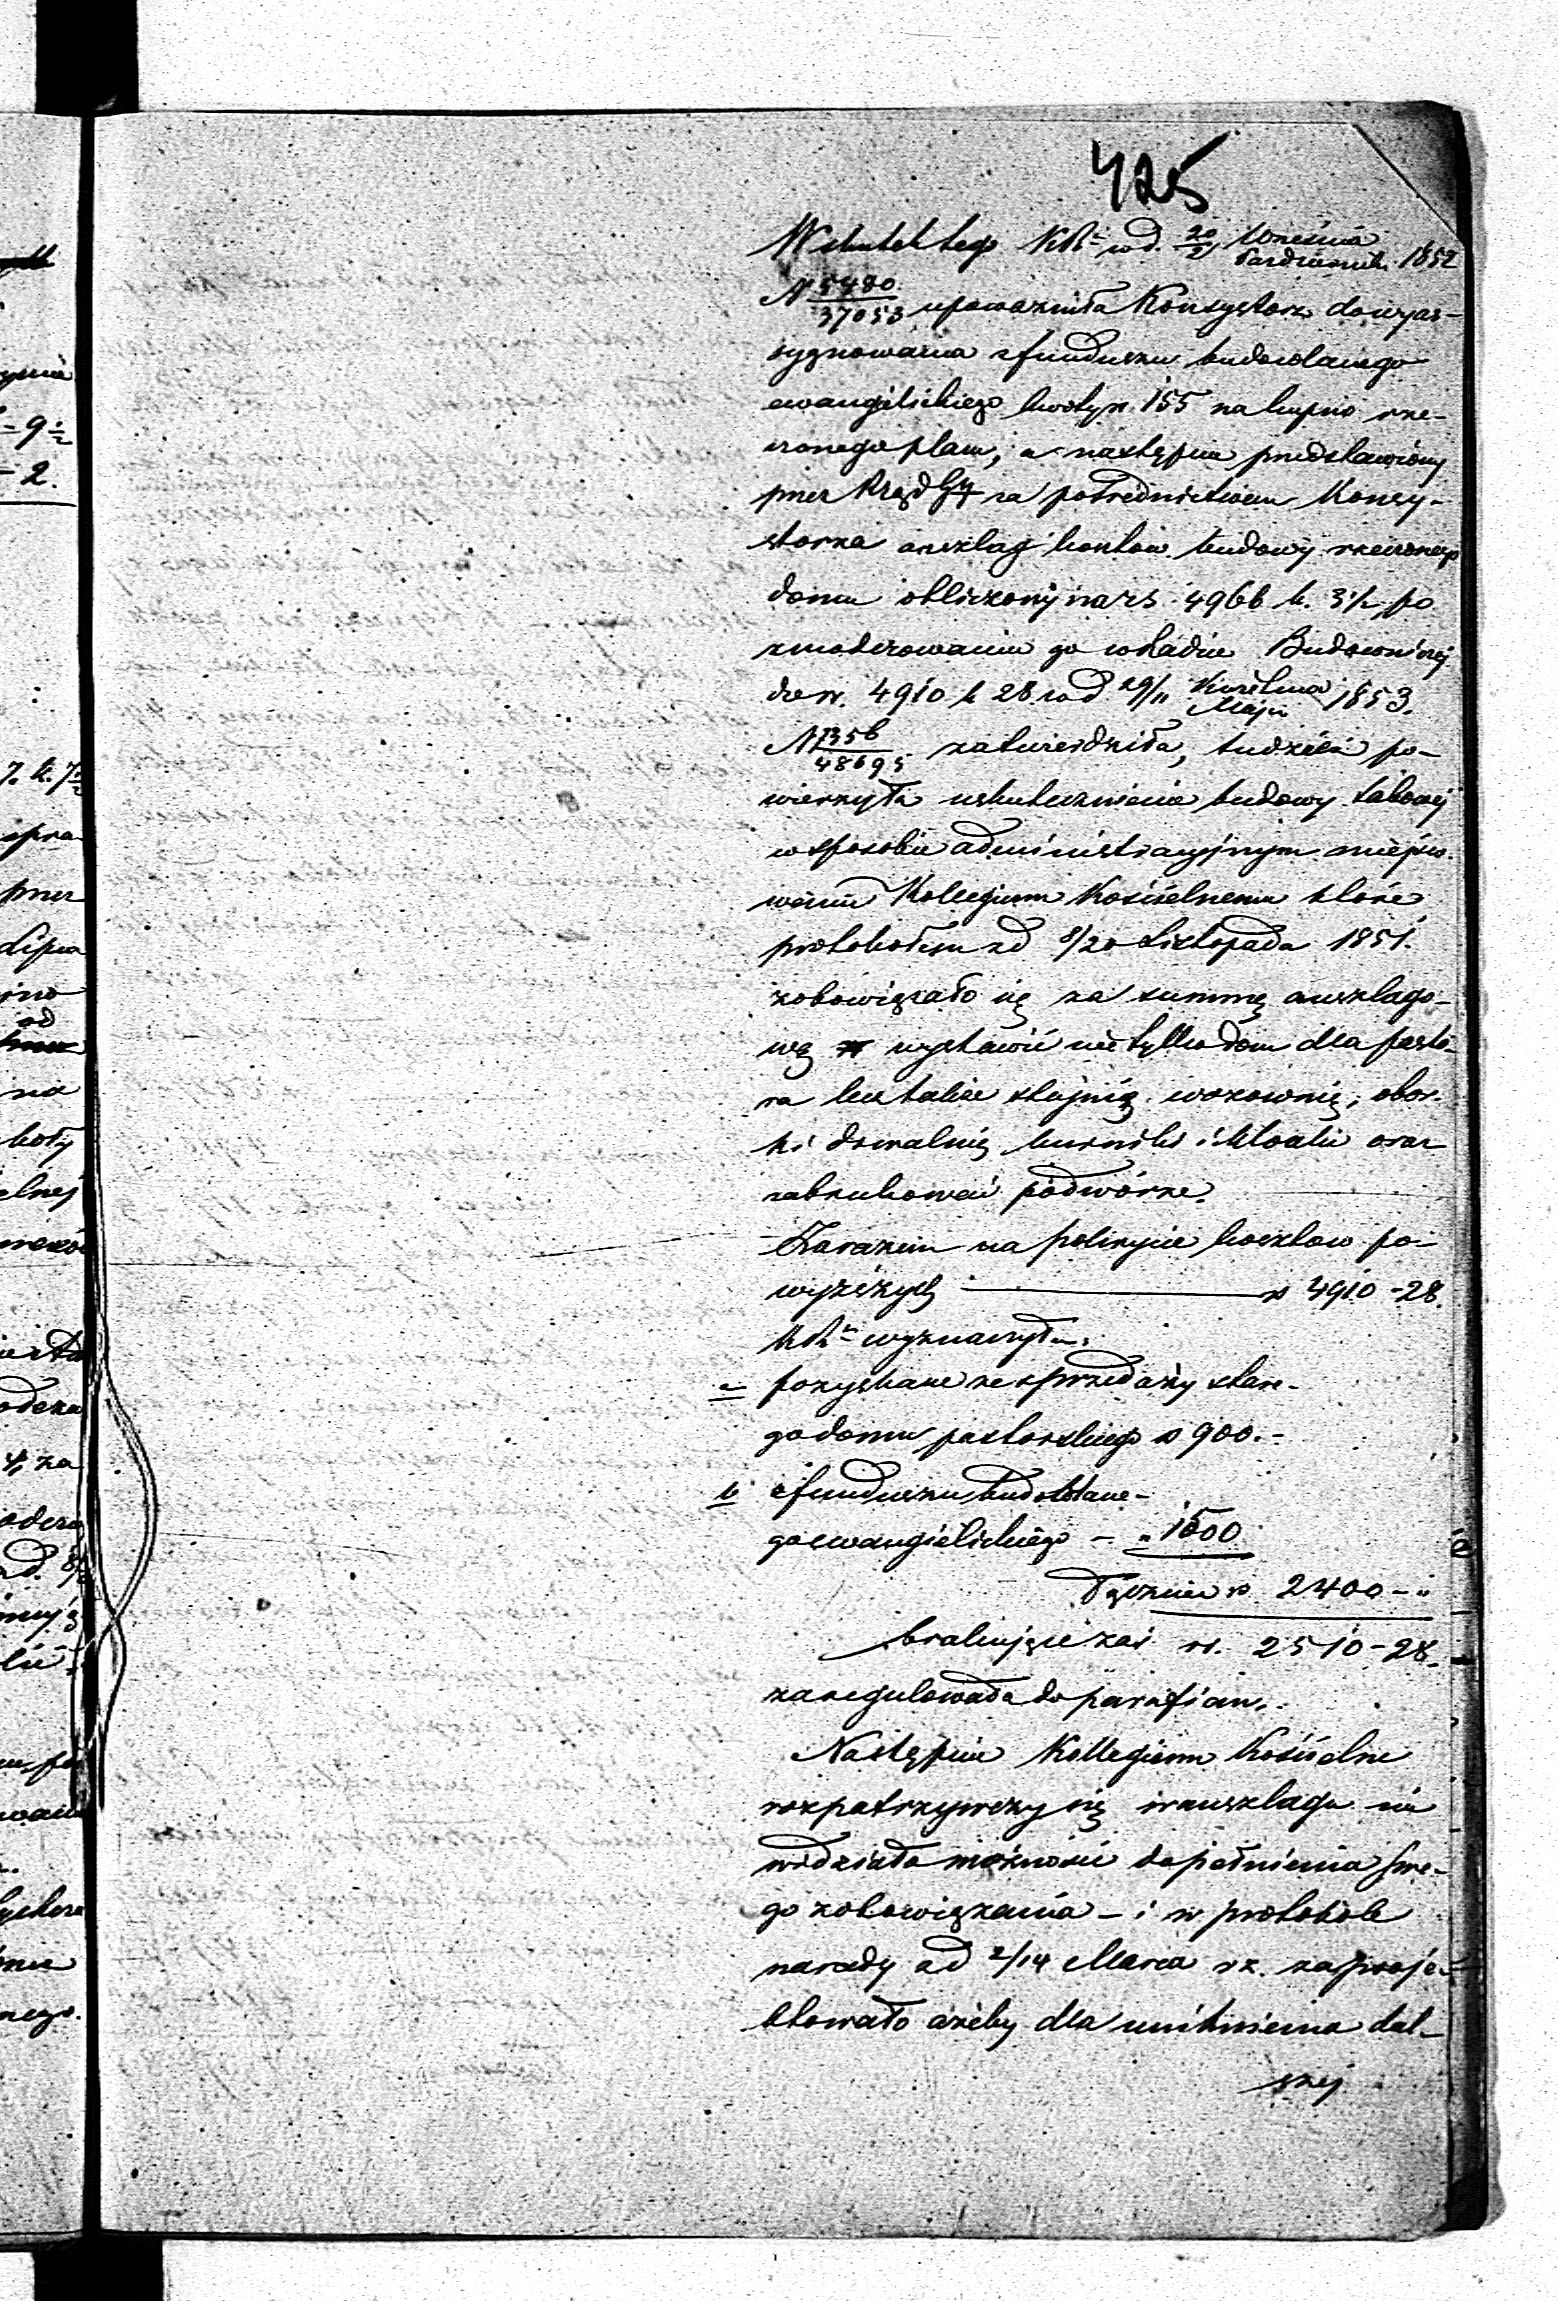 425
Wskutek tego KR w d. 20/2 Września Października 1852
N 5480/37053 upoważniła Konsystorz do wyas-
sygnowania z funduszu budowlanego
ewangelickiego kwoty rs. 155 na kupno rze-
czonego placu, a następnie przedstawiony
przez Rząd Gu za pośrednictwem Konsy-
storza anszlag kosztów budowy rzeczonego
domu obliczony na rs. 4966 k. 3½ po
zmoderowaniu go w Radzie Budowniczej
do rs. 4910 k 28 w d 29/11 Kwietnia Maja 1853.
N 1356/48695 zatwierdziła, tudzież po-
wierzyła uskutecznienie budowy takowej
w sposobie administracyjnym miejsco-
wemu Kollegium Kościelnemu które
protokołem z d 8/20 Listopada 1851.
zobowiązało się za summę anszlago-
wą wystawić nie tylko dom dla pasto-
ra lecz także stajnię wozownię, obor-
ki drwalnię, kurniki i kloaki oraz
zabrukować podwórze.
Zarazem na pokrycie kosztów po-
wyższych rs 4910 - 28.
KR wyznaczyła:
a pozyskane ze sprzedaży stare-
go domu pastorskiego rs 900. -
b z funduszu budowlane-
go ewangielickiego - " 1500
Łącznie rs 2400 - "
brakujące zaś rs. 2510 - 28.
zaregulowała do parafian.
Następnie Kollegium Kościelne
rozpatrzywszy się w anszlagu nie
widziało możności dopełnienia swe-
go zobowiązania - i w protokole
narady z d 2/14 Marca rz. zaproje-
ktowało ażeby dla uniknienia dal-
szej